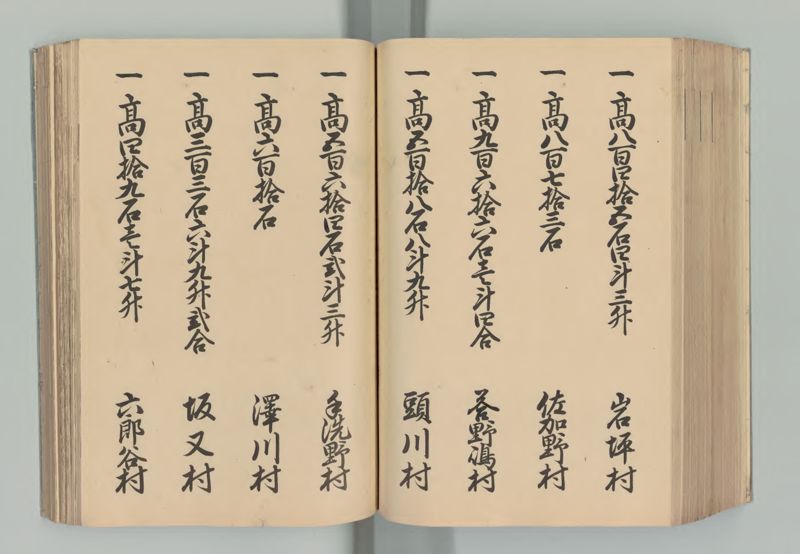 一 高八百四拾五石四斗三升 岩坪村
一 高八百七拾三石 佐加野村
一 高九百六拾六石壱斗四合 答野嶋村
一 高五百拾八石八斗九升 頭川村
一 高五百六拾四石弐斗三升 手洗野村
一 高六百拾石 澤川村
一 高三百三石六斗九升弐合 坂又村
一 高四拾九石壱斗七升 六郎谷村